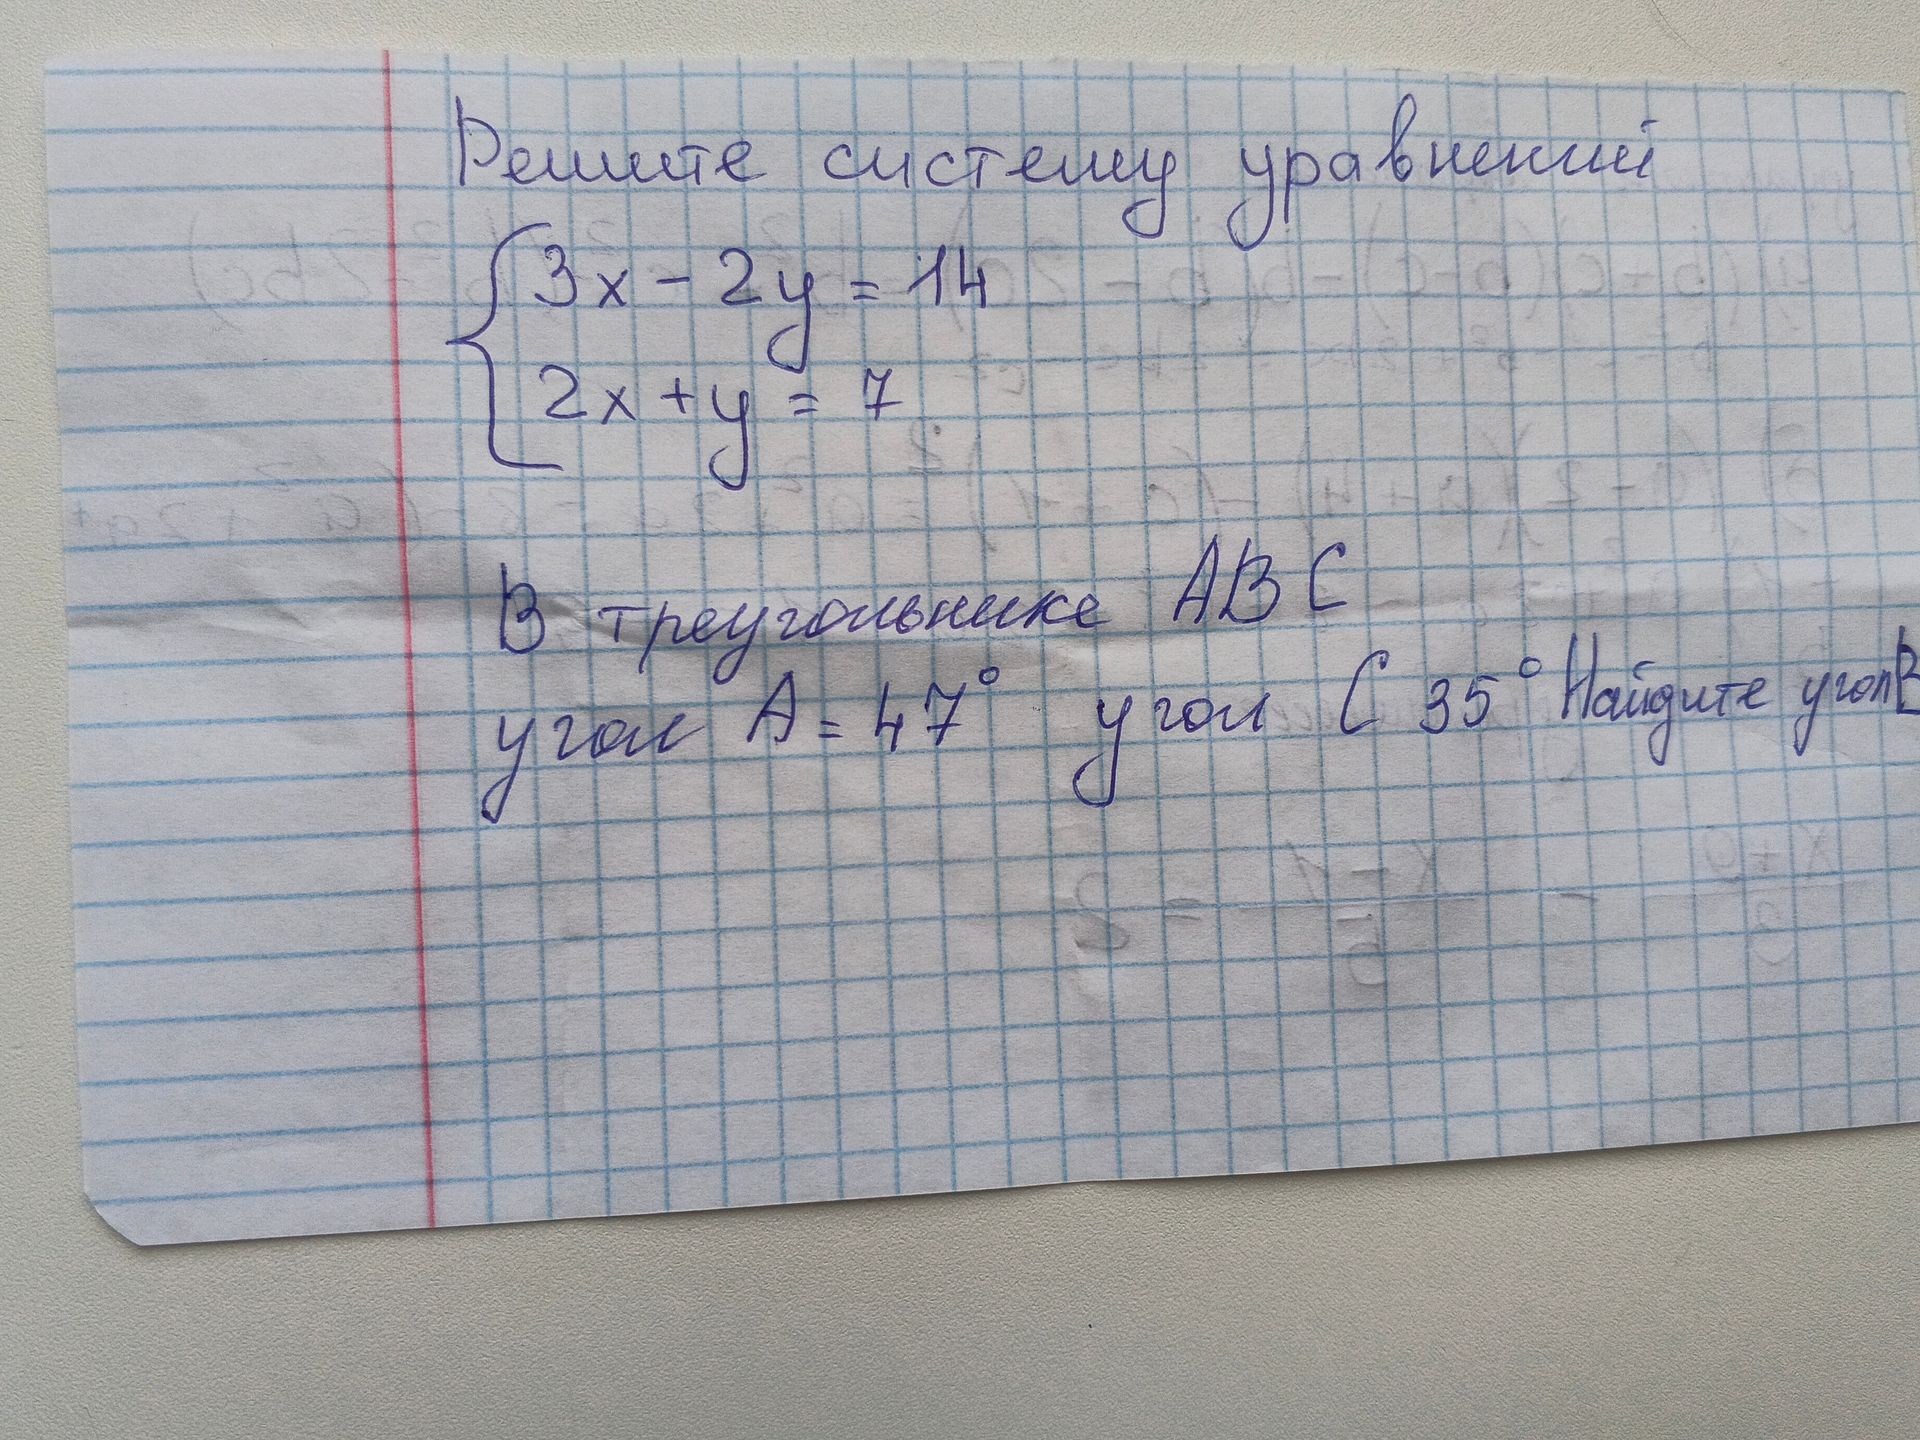 Решите систему уравнений
3x - 2y = 14
2x + y = 7
В треугольнике ABC
угол A = 47° угол C 35° Найдите угол B